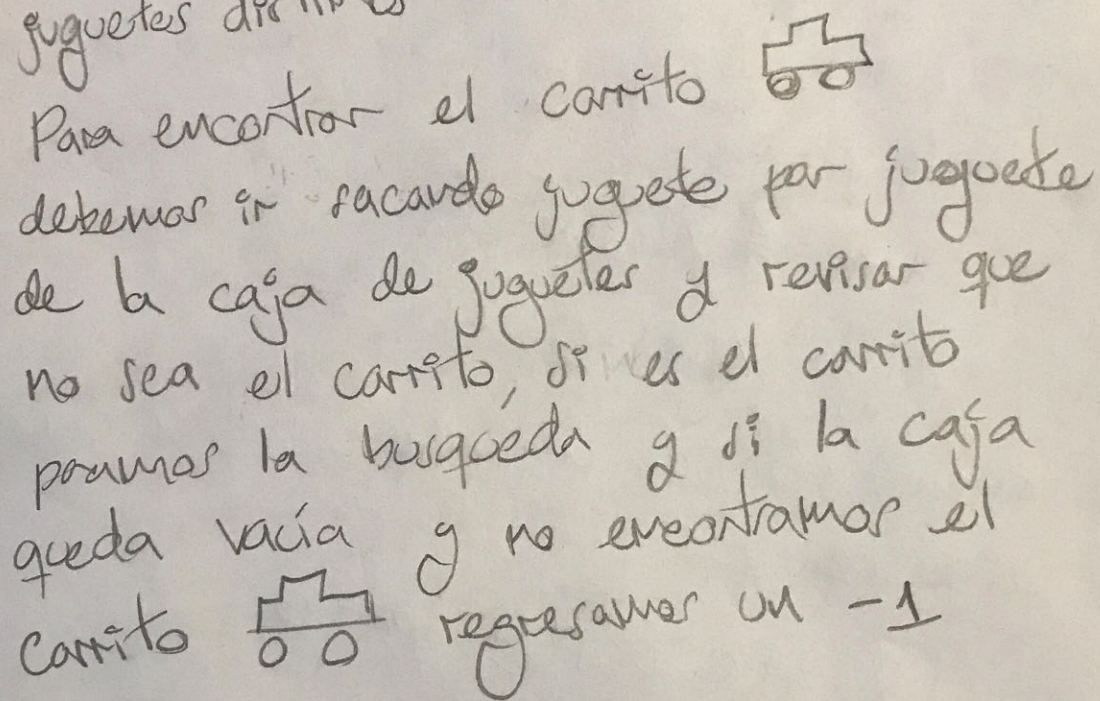 juguetes
Para encontrar el carrito
debemos ir sacando juguete por juguete
de la caja de juguetes y revisar que
no sea el carrito, si es el carrito
paramos la busqueda y si la caja
queda vacía y no encontramos el
carrito regresamos un -1